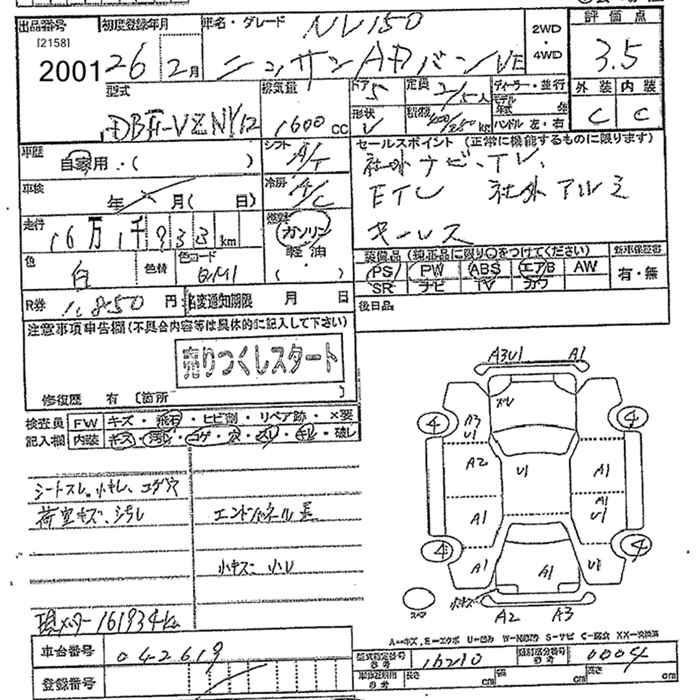 出品番号 初度登録年月 車名・グレード NV150 2WD・4WD 評価点
[2158]
2001 26 2月 ニッサンADバン VE 3.5
型式 排気量 ドア 5 定員 2/5人 ディーラー・並行 外装 内装
DBF-VZNY12 1600CC 形状 V 積載 kg モデル年式 ハンドル 左・右 C C
車歴 シフト セールスポイント (正常に機能するものに限ります)
自家用・( ) A/T 社外ナビ、TV、
車検 年 月( 日) 冷房 A/C ETC 社外アルミ
走行 16万1千933km 燃料 ガソリン キーレス
軽油 装備品 (純正品に限り○をつけてください) 新車保証書
色 白 色替 色コード QM1 ・( ) PS PW ABS エアB AW 有・無
SR ナビ TV カワ
R券 11,850円 名変通知期限 月 日 後日品
注意事項申告欄(不具合内容等は具体的に記入して下さい)
売りつくしスタート
修復歴 有 [箇所 ]
検査員記入欄 FW キズ・飛石・ヒビ割・リペア跡・×要
内装 キズ・汚れ・コゲ・穴・スレ・キレ・破レ
シートスレ、小キレ、コゲ穴
荷室キズ、汚れ エンドパネル
小キズ 小
現メーター161934km
A3U1 A1
スレ
4 4
A3
U1
A2 U1 A1
A1
A1 U1
4 4
A1 A1 U1
スペア 小キズ A2 A3
A=キズ,E=エクボ U=凹み W=補修跡 S=サビ C=腐食 XX=交換済
車台番号 042619 型式指定番号 参考 16210 類別区分番号 参考 0004
登録番号 車両諸元 参考 長さ cm 幅 cm 高さ cm